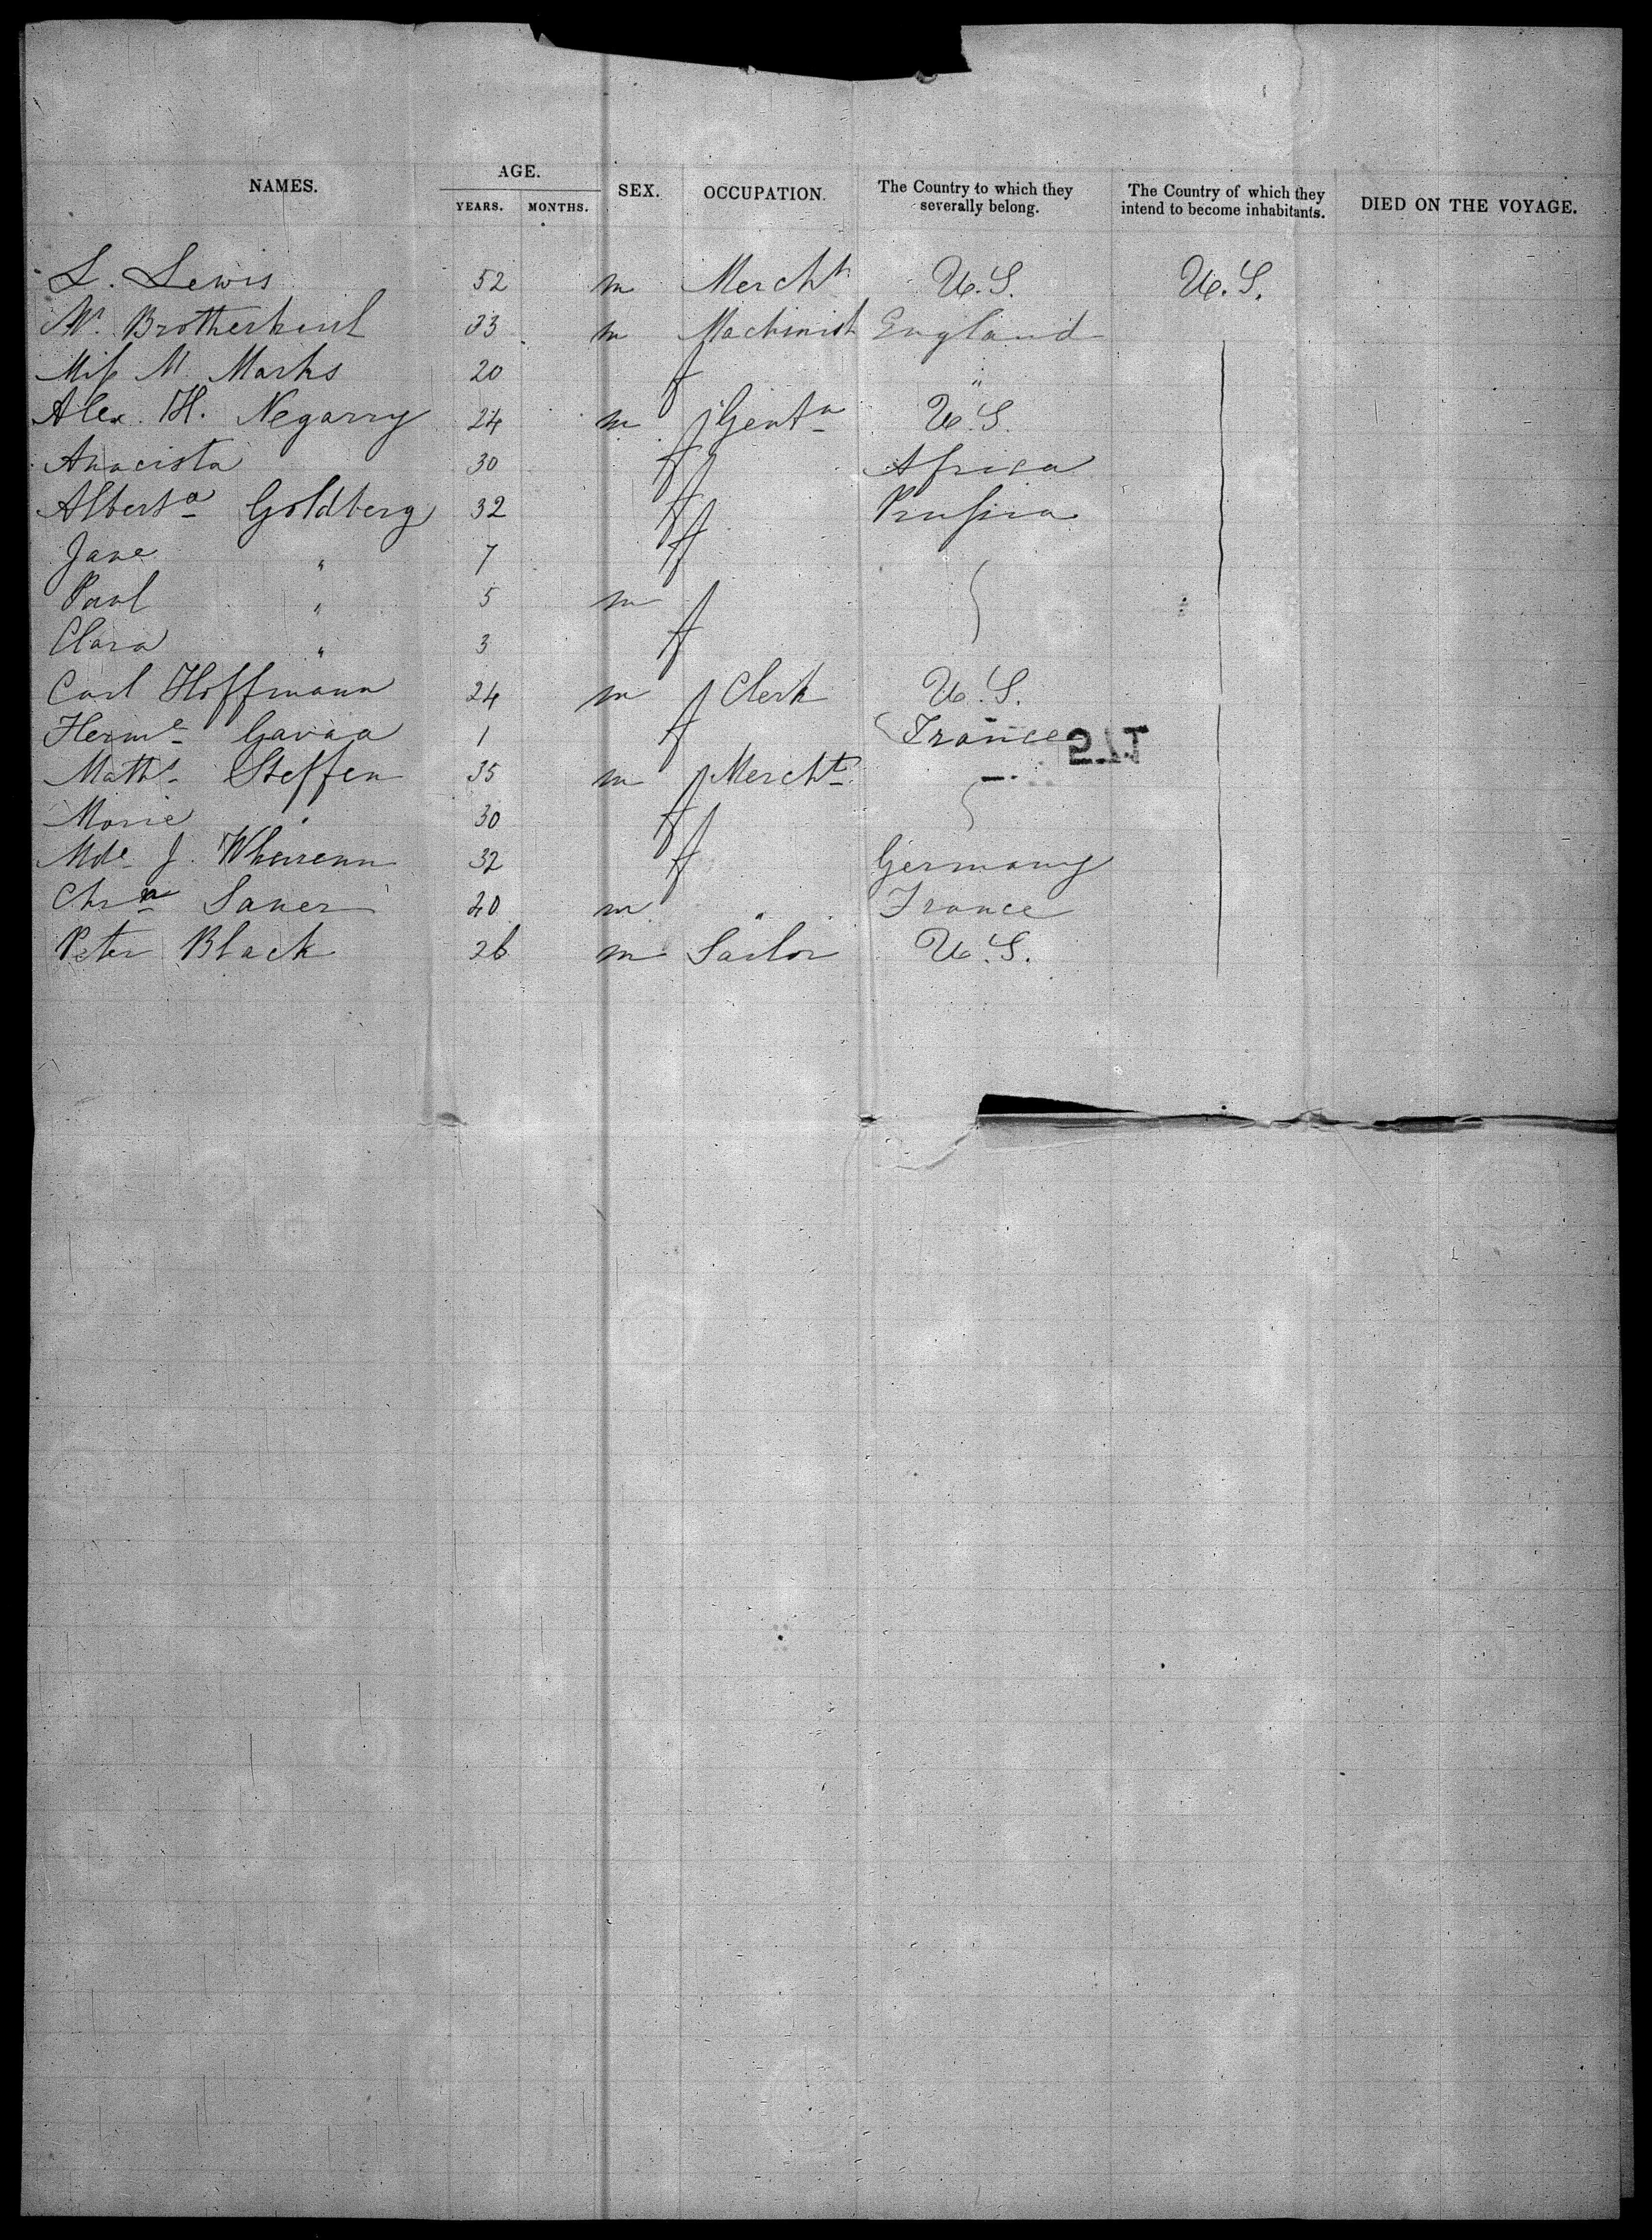 NAMES. AGE. YEARS. MONTHS. SEX. OCCUPATION. The Country to which they severally belong. The Country of which they intend to become inhabitants. DIED ON THE VOYAGE.
L. Lewis 52 m Mercht U.S. U.S.
Mr. Brotherkind 33 m Machinist England
Miss M. Marks 20 f "
Alex. H. Negarry 24 m Gentn U.S.
Anacista 30 f Africa
Alberta Goldberg 32 f Prussia
Jane " 7 f
Paul " 5 m
Clara " 3 f
Carl Hoffmann 24 m Clerk U.S.
Herme Gavaa 1 f France
Matths Steffen 35 m Mercht
Marie " 30 f
Mde J. 32 f Germany
Chrn Saner 20 m " France
Peter Black 26 m Sailor U.S.